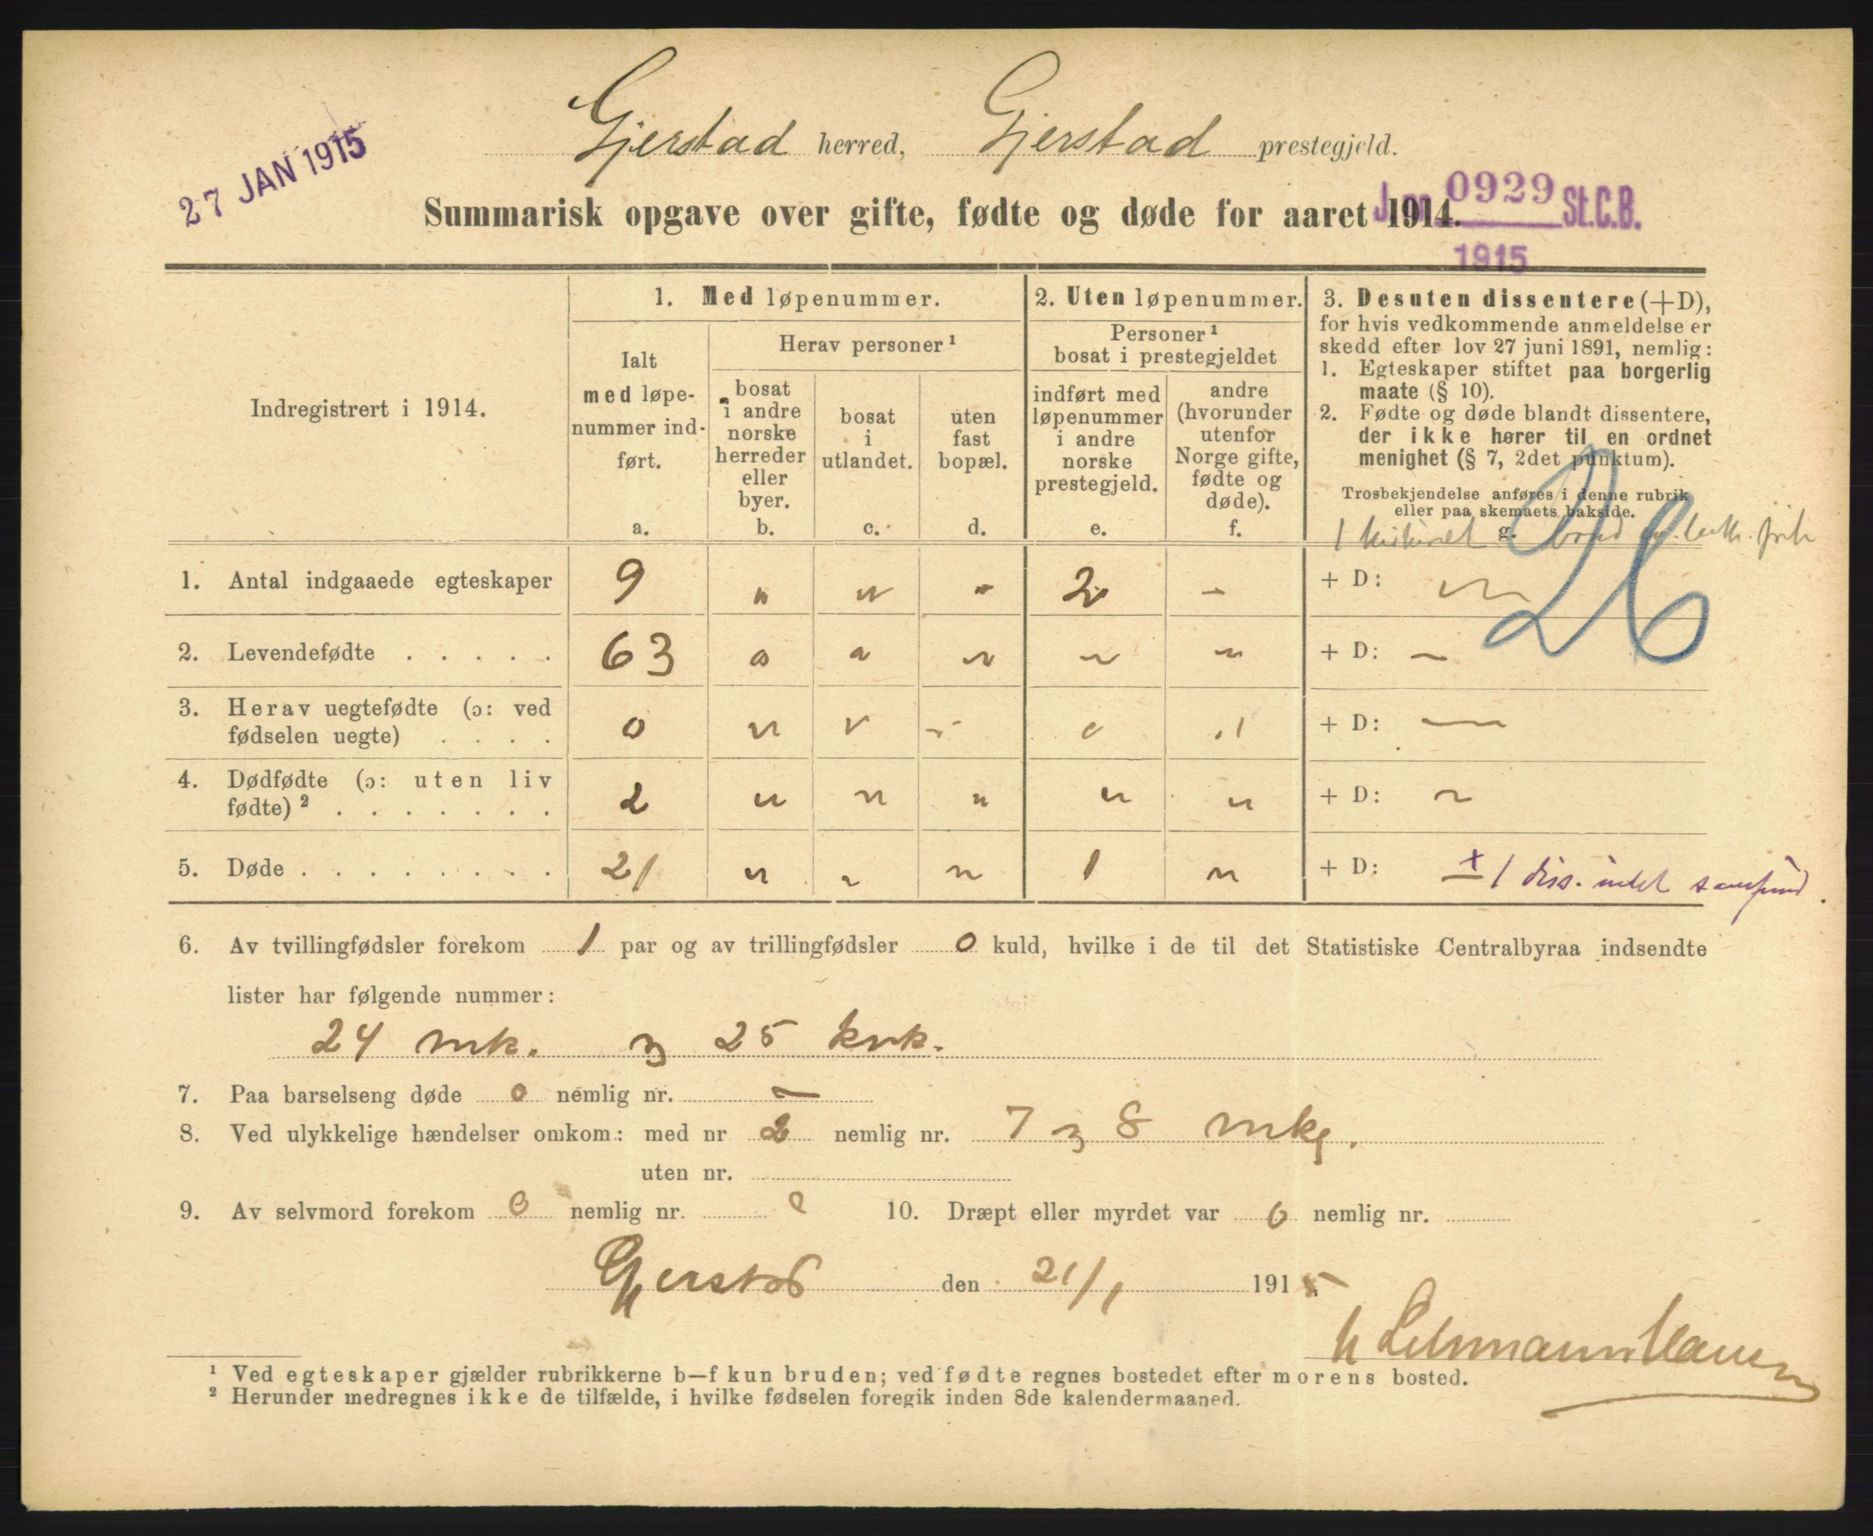 Gjerstad herred, Gjerstad prestegjeld.
27 JAN 1915
J.nr. 0929 St.C.B.
1915
Summarisk opgave over gifte, fødte og døde for aaret 1914.
Indregistrert i 1914.
1. Med løpenummer.
Ialt
med løpe-
nummer ind-
ført.
a.
Herav personer ¹
bosat
i andre
norske
herreder
eller
byer.
b.
bosat
i
utlandet.
c.
uten
fast
bopæl.
d.
2. Uten løpenummer.
Personer ¹
bosat i prestegjeldet
indført med
løpenummer
i andre
norske
prestegjeld.
e.
andre
(hvorunder
utenfor
Norge gifte,
fødte og
døde).
f.
3. Desuten dissentere (+D),
for hvis vedkommende anmeldelse er
skedd efter lov 27 juni 1891, nemlig:
1. Egteskaper stiftet paa borgerlig
maate (§ 10).
2. Fødte og døde blandt dissentere,
der ikke hører til en ordnet
menighet (§ 7, 2det punktum).
Trosbekjendelse anføres i denne rubrik
eller paa skemaets bakside.
g.
26
1. Antal indgaaede egteskaper 9 " " " 2 - + D: "
2. Levendefødte . . . . . 63 " " " " " + D: -
3. Herav uegtefødte (ɔ: ved
fødselen uegte) . . . . 0 " " " " " + D: —
4. Dødfødte (ɔ: uten liv
fødte) ² . . . . . . . 2 " " " " " + D: ~
5. Døde . . . . . . . . . 21 " " " 1 " + D: + 1 diss. intet samfund.
6. Av tvillingfødsler forekom 1 par og av trillingfødsler 0 kuld, hvilke i de til det Statistiske Centralbyraa indsendte
lister har følgende nummer:
24 mk. og 25 kvk.
7. Paa barselseng døde 0 nemlig nr. —
8. Ved ulykkelige hændelser omkom: med nr 2 nemlig nr. 7 og 8 mkj.
uten nr.
9. Av selvmord forekom 0 nemlig nr. 0 10. Dræpt eller myrdet var 0 nemlig nr.
Gjerstad den 21/1 1915.
Lehmann Hansen
¹ Ved egteskaper gjælder rubrikkerne b—f kun bruden; ved fødte regnes bostedet efter morens bosted.
² Herunder medregnes ikke de tilfælde, i hvilke fødselen foregik inden 8de kalendermaaned.